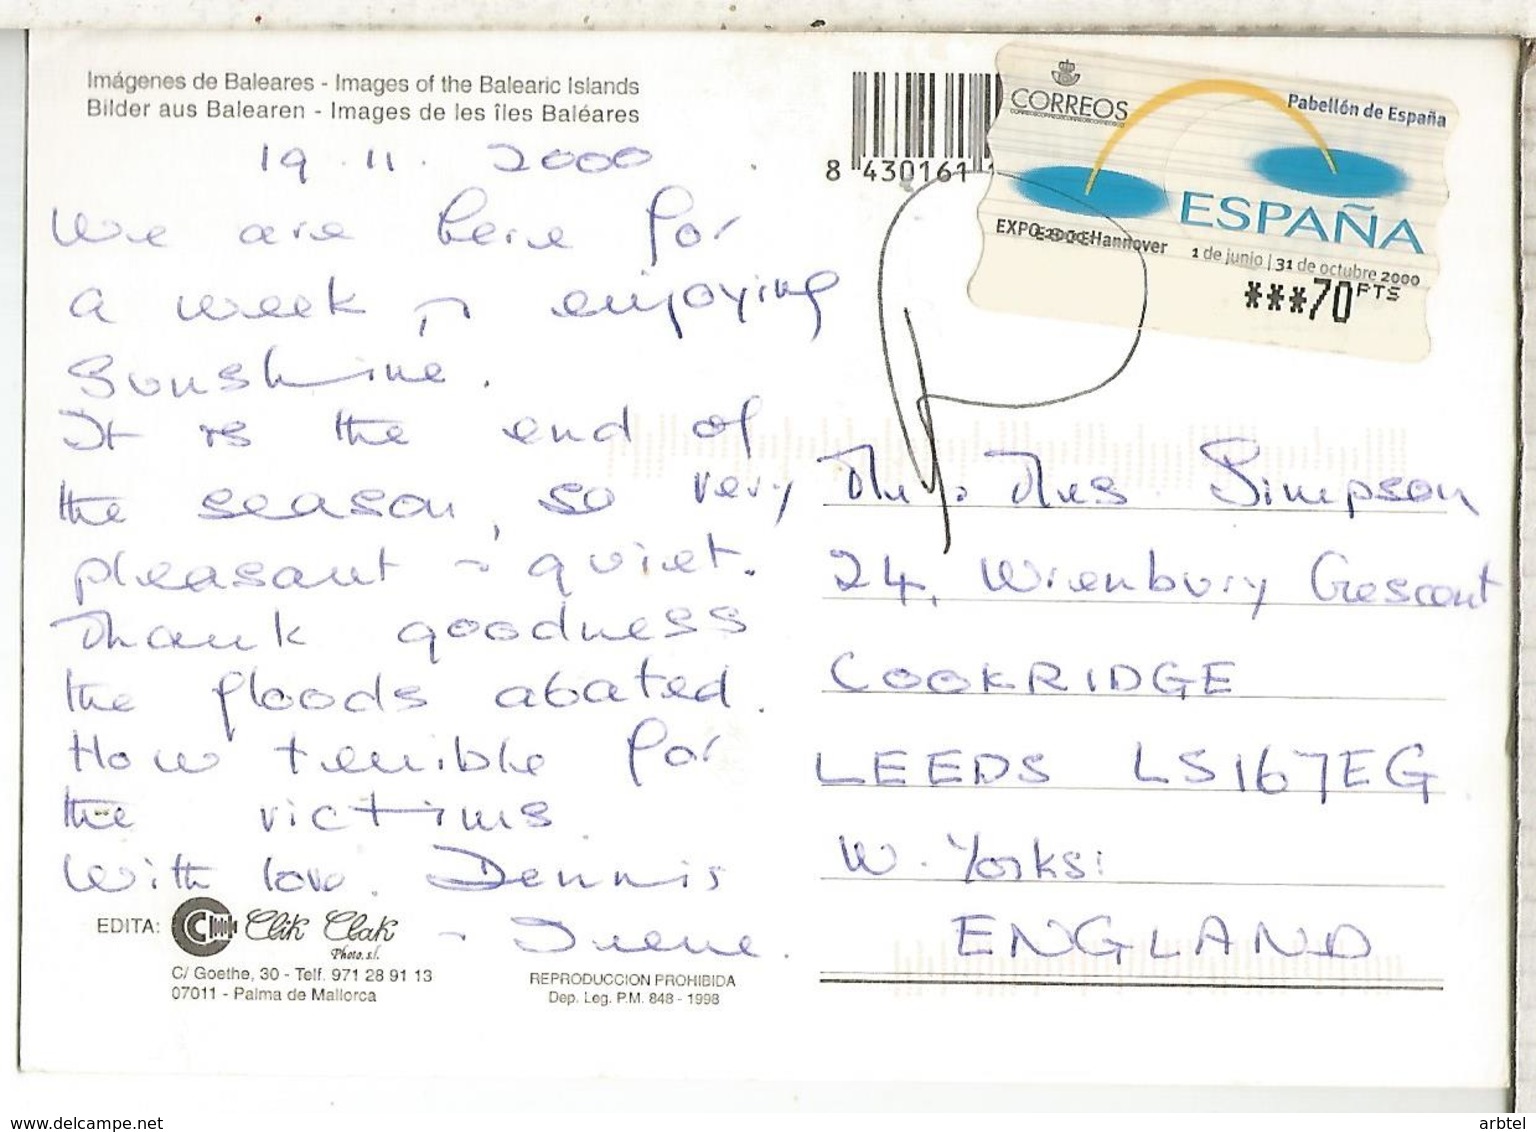 Imágenes de Baleares - Images of the Balearic Islands
Bilder aus Balearen - Images de les îles Baléares
19 . 11 . 2000
We are here for
a week enjoying
sunshine.
It is the end of
the season, so very
pleasant quiet.
Thank goodness
the floods abated.
How terrible for
the victims
With love. Dennis
Irene.
EDITA: Clik Clak
Photo, s.l.
C/ Goethe, 30 - Telf. 971 28 91 13
07011 - Palma de Mallorca
REPRODUCCION PROHIBIDA
Dep. Leg. P.M. 848 - 1998
8 430161
CORREOS
Pabellón de España
ESPAÑA
EXPO 2000 Hannover
1 de junio | 31 de octubre 2000
***70 PTS
Mr. Mrs. Simpson
24, Wrenbury Crescent
COOKRIDGE
LEEDS LS167EG
W. Yorks:
ENGLAND
www.delcampe.net
arbtel